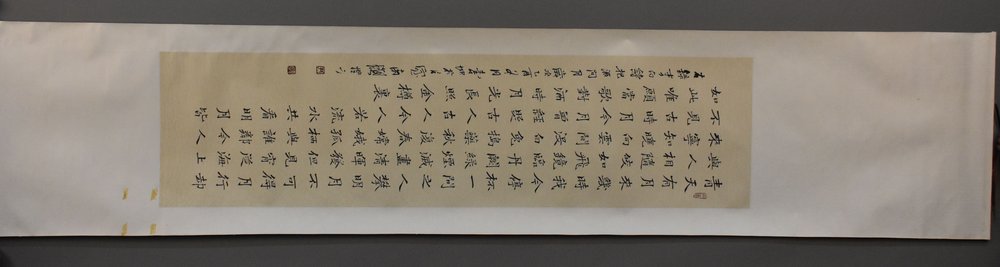 青天有月來幾時我今停杯一問之人攀明月不可得月行卻
與人相隨皎如飛鏡臨丹闕綠煙滅盡清暉發但見宵從海上
來寧知曉向雲間沒白兔搗藥秋復春嫦娥孤棲與誰鄰今人
不見古時月今月曾經照古人古人今人若流水共看明月皆
如此唯願當歌對酒時月光長照金樽裏
右錄李白詩把酒問月歲次乙酉卯月